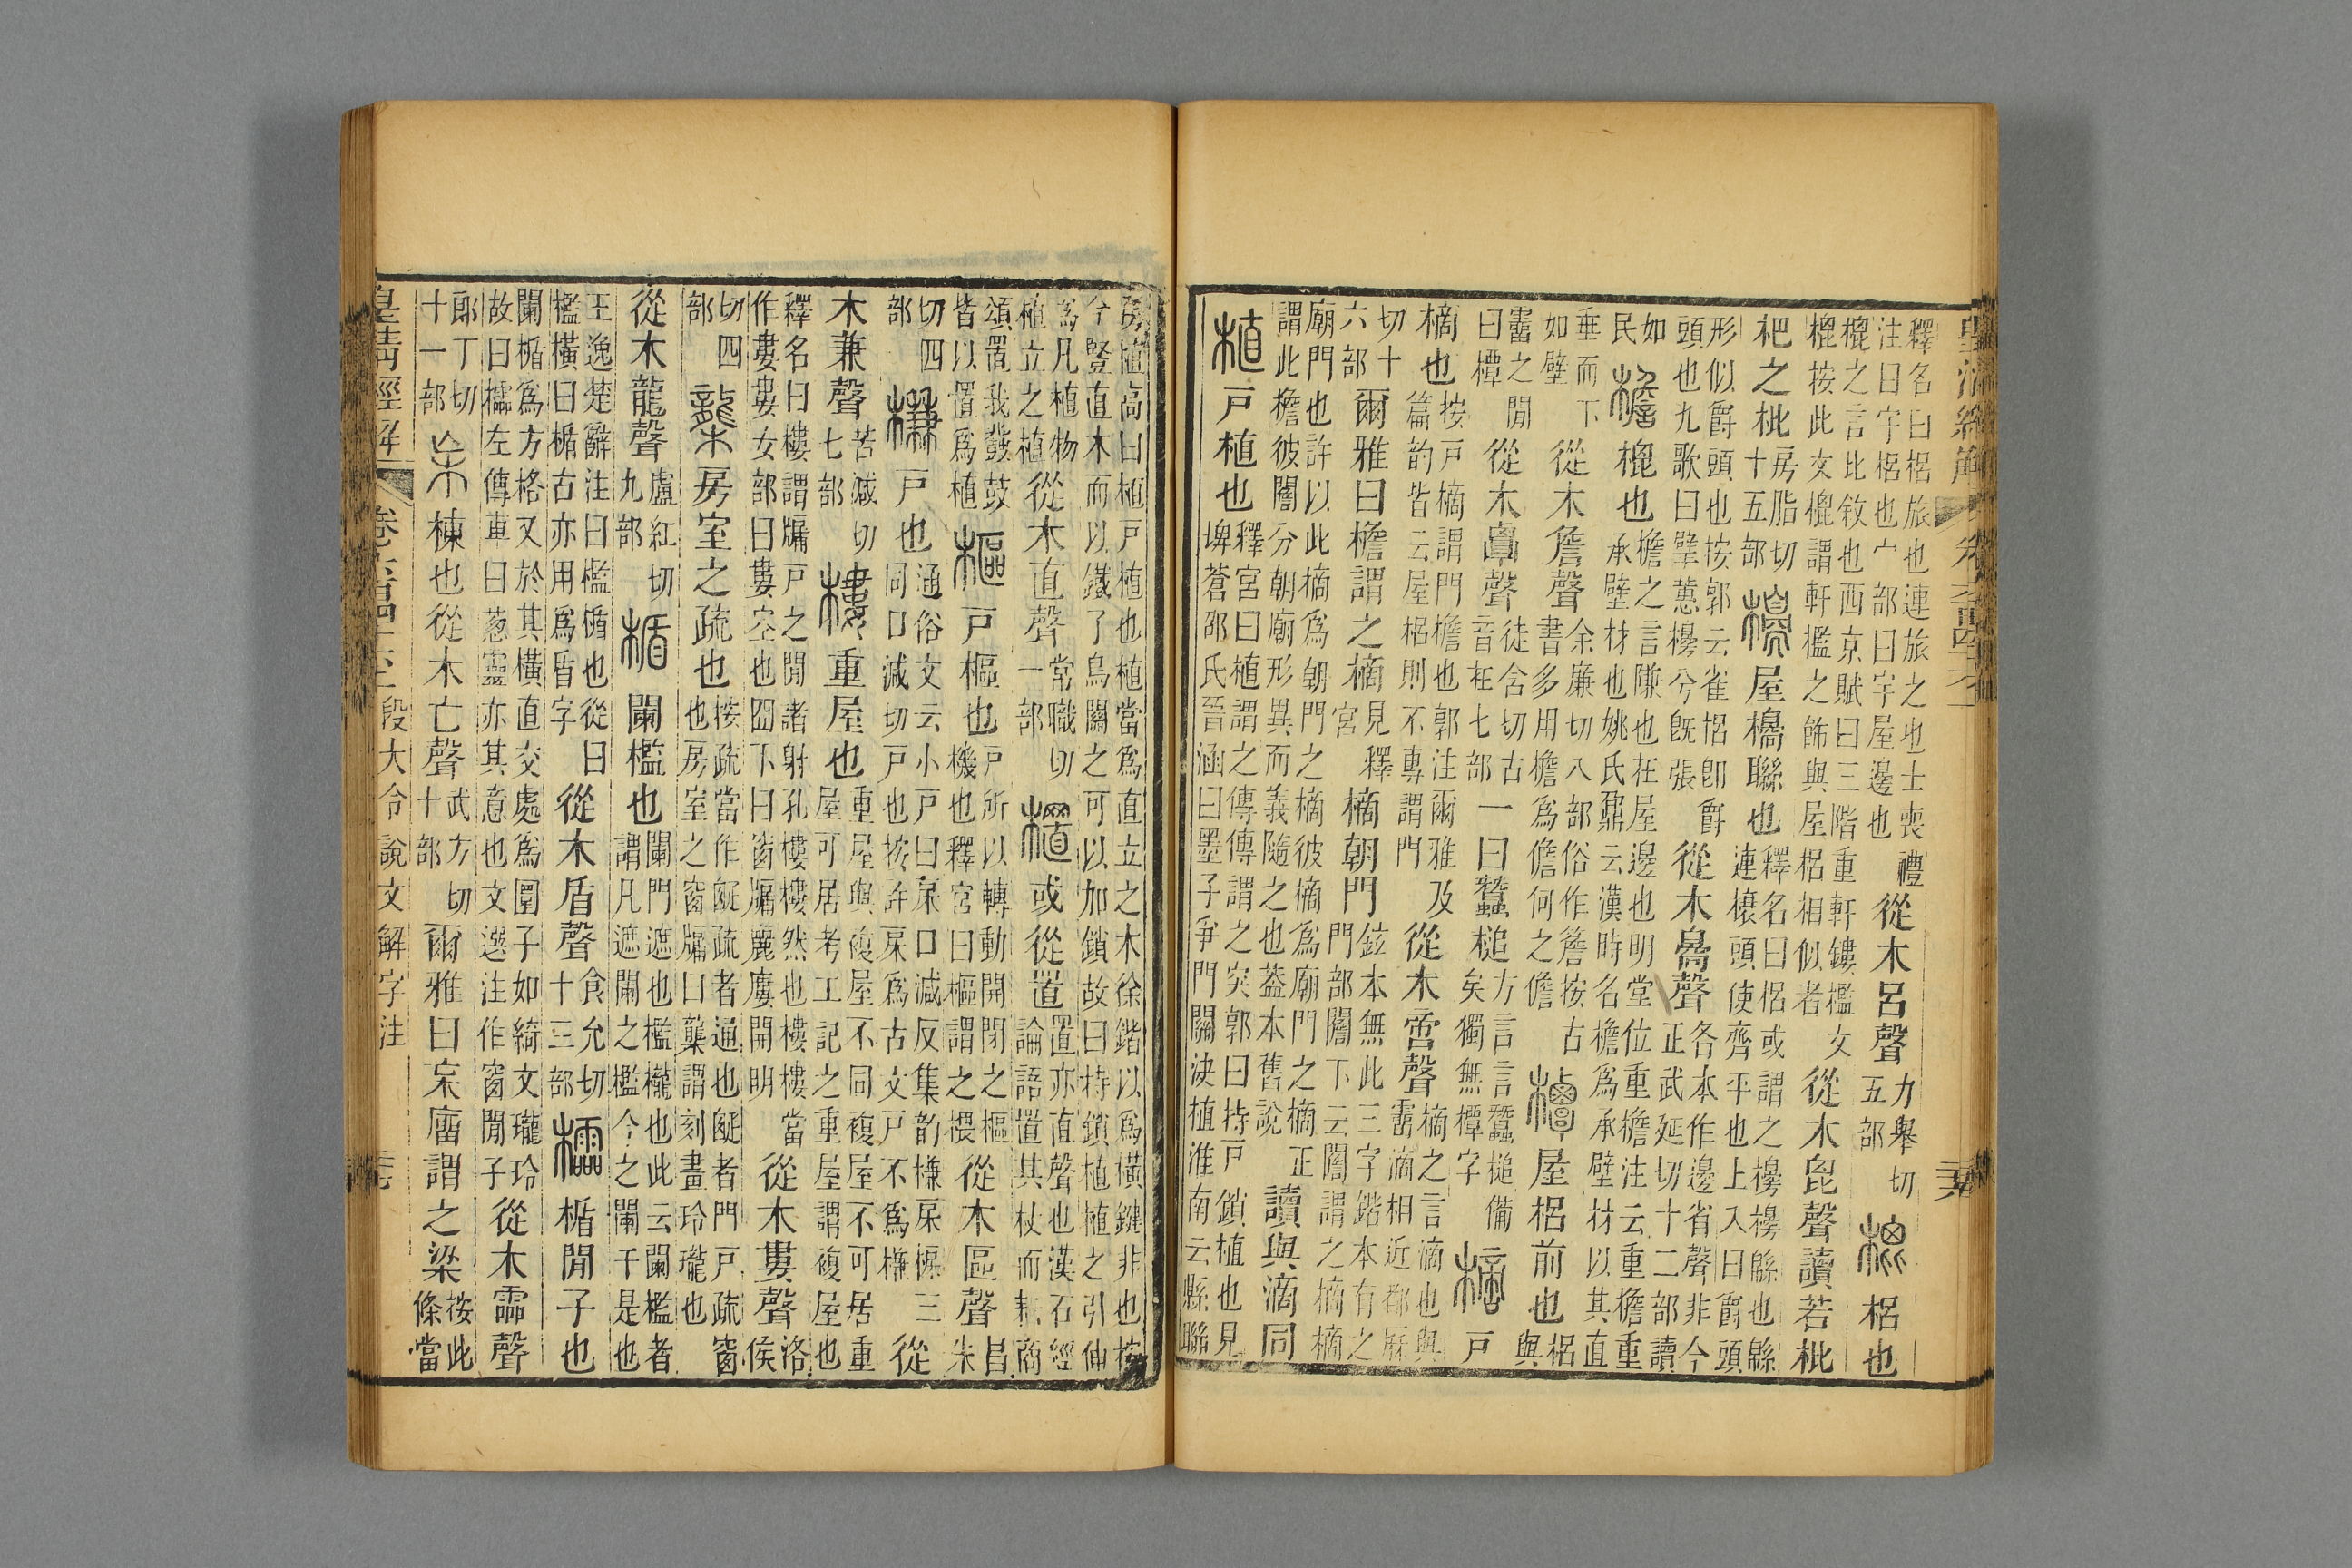 皇清經解 卷六百四十六上 三六
釋名曰梠旅也連旅之也士喪禮注曰宇梠也宀部曰宇屋邊也從木呂聲力舉切五部㮰梠也
㮰之言比敘也西京賦曰三階重軒鏤檻文㮰按此文㮰謂軒檻之飾與屋梠相似者從木毘聲讀若枇
杷之枇房脂切十五部櫋屋櫋聯也釋名曰梠或謂之櫋櫋緜也緜連榱頭使齊平也上入曰爵頭
形似爵頭也按郭云雀梠卽爵頭也九歌曰擘蕙櫋兮旣張從木𦤝聲各本作邊省聲非今正武延切十二部讀
如民檐㮰也檐之言隒也在屋邊也明堂位重檐注云重檐重承壁材也姚氏鼐云漢時名檐爲承壁材以其直
垂而下如壁從木詹聲余廉切八部俗作簷按古書多用檐爲儋何之儋橝屋梠前也梠與
霤之閒曰橝從木覃聲徒含切古音在七部一曰蠶槌方言言蠶槌備矣獨無橝字樀戶
樀也按戶樀謂門檐也郭注爾雅及篇韵皆云屋梠則不專謂門從木啻聲樀之言滴也與霤滴相近都厤
切十六部爾雅曰檐謂之樀見釋宮樀朝門鉉本無此三字鍇本有之門部闇下云闇謂之樀樀
廟門也許以此樀爲朝門之樀彼樀爲廟門之樀正謂此檐彼闇分朝廟形異而義隨之也葢本舊說讀與滴同
植戶植也釋宮曰植謂之傳傳謂之突郭曰持戶鎖植也見埤蒼邵氏晉涵曰墨子爭門關決植淮南云縣聯
房植高曰植戶植也植當爲直立之木徐鍇以爲橫鍵非也按今豎直木而以鐵了鳥關之可以加鎖故曰持鎖植植之引伸
爲凡植物植立之植從木直聲常職切一部㯰或從置置亦直聲也漢石經論語置其杖而耘商
頌置我鼗鼓皆以置爲植樞戶樞也戶所以轉動開閉之樞機也釋宮曰樞謂之椳從木區聲昌朱
切四部槏戶也通俗文云小戶曰㦿口減反集韵槏㦿三同口減切戶也按許㦿爲古文戶不爲槏從
木兼聲苦減切七部樓重屋也重屋與複屋不同複屋不可居重屋可居考工記之重屋謂複屋也
釋名曰樓謂牖戶之閒諸射孔樓樓然也樓樓當作婁婁女部曰婁空也囧下曰窗牖麗廔開明從木婁聲洛侯
切四部櫳房室之疏也按疏當作𤴙疏者通也𤴙者門戶疏窗也房室之窗牖曰櫳謂刻畫玲瓏也
從木龍聲盧紅切九部楯闌檻也闌門遮也檻櫳也此云闌檻者謂凡遮闌之檻今之闌干是也
王逸楚辭注曰檻楯也從曰檻橫曰楯古亦用爲盾字從木盾聲食允切十三部櫺楯閒子也
闌楯爲方格又於其橫直交處爲圜子如綺文瓏玲故曰櫺左傳車曰蔥靈亦其意也文選注作窗閒子從木霝聲
郎丁切十一部杗棟也從木亡聲武方切十部爾雅曰杗廇謂之梁按此條當
皇清經解 卷六百四十六上 段大令說文解字注 三七